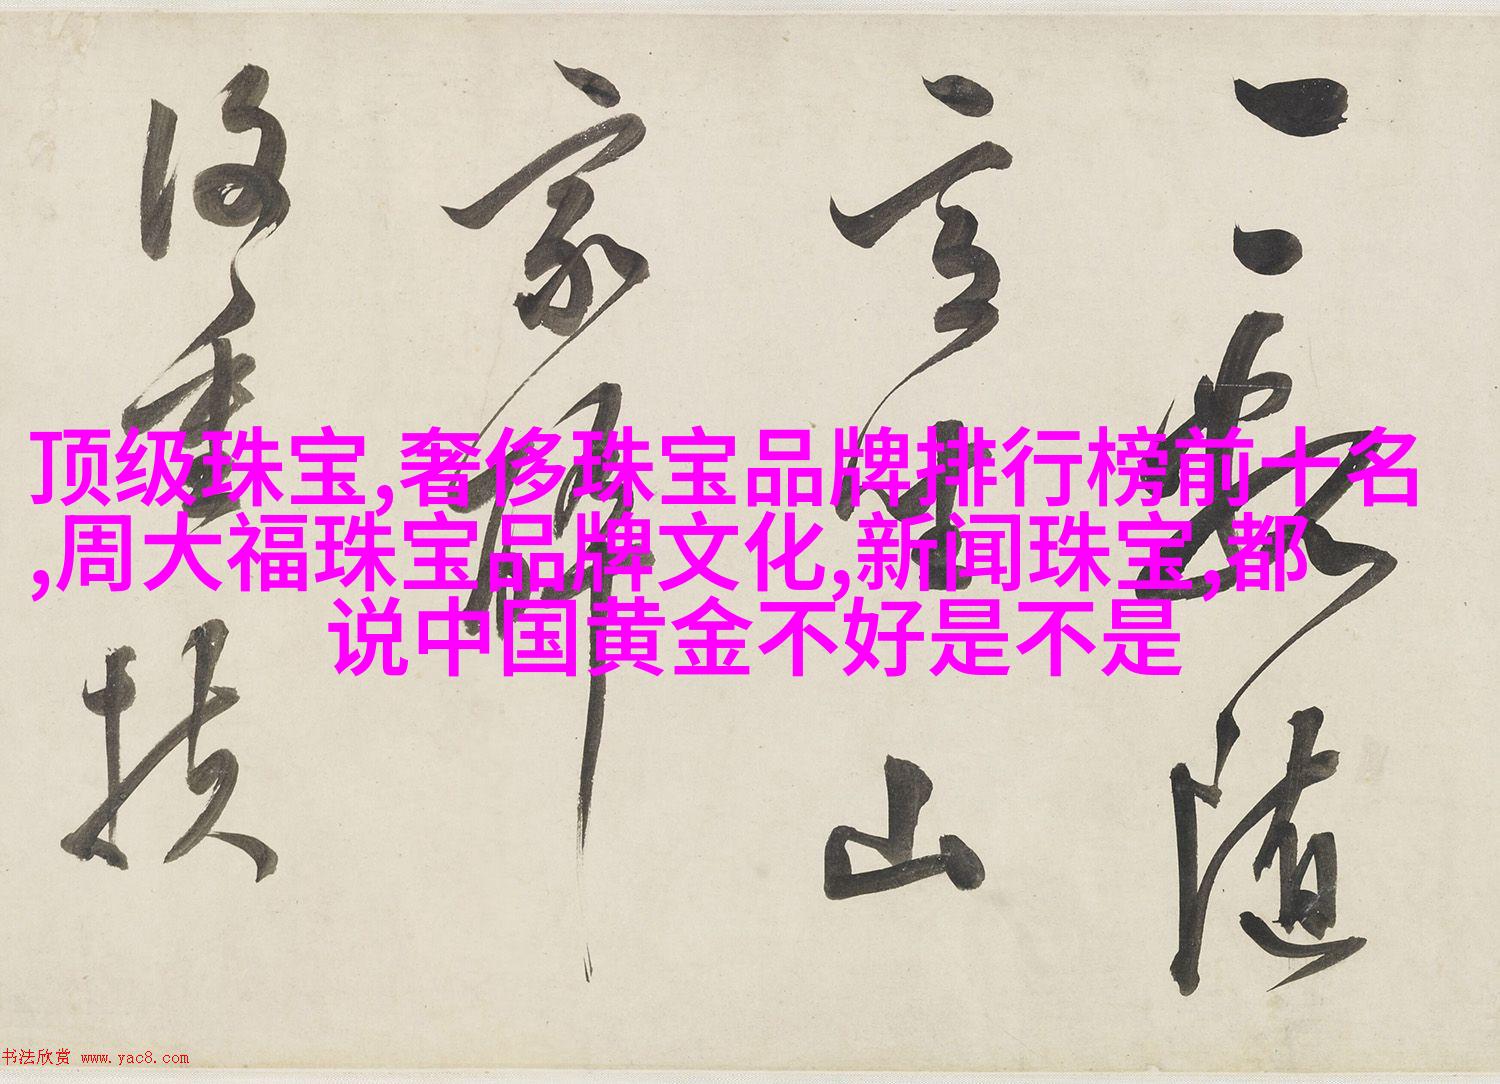 顶级珠宝,奢侈珠宝品牌排行榜前十名
,周大福珠宝品牌文化,新闻珠宝,都
说中国黄金不好是不是
随
山
家
重扶
书法欣赏 www.yac8.com